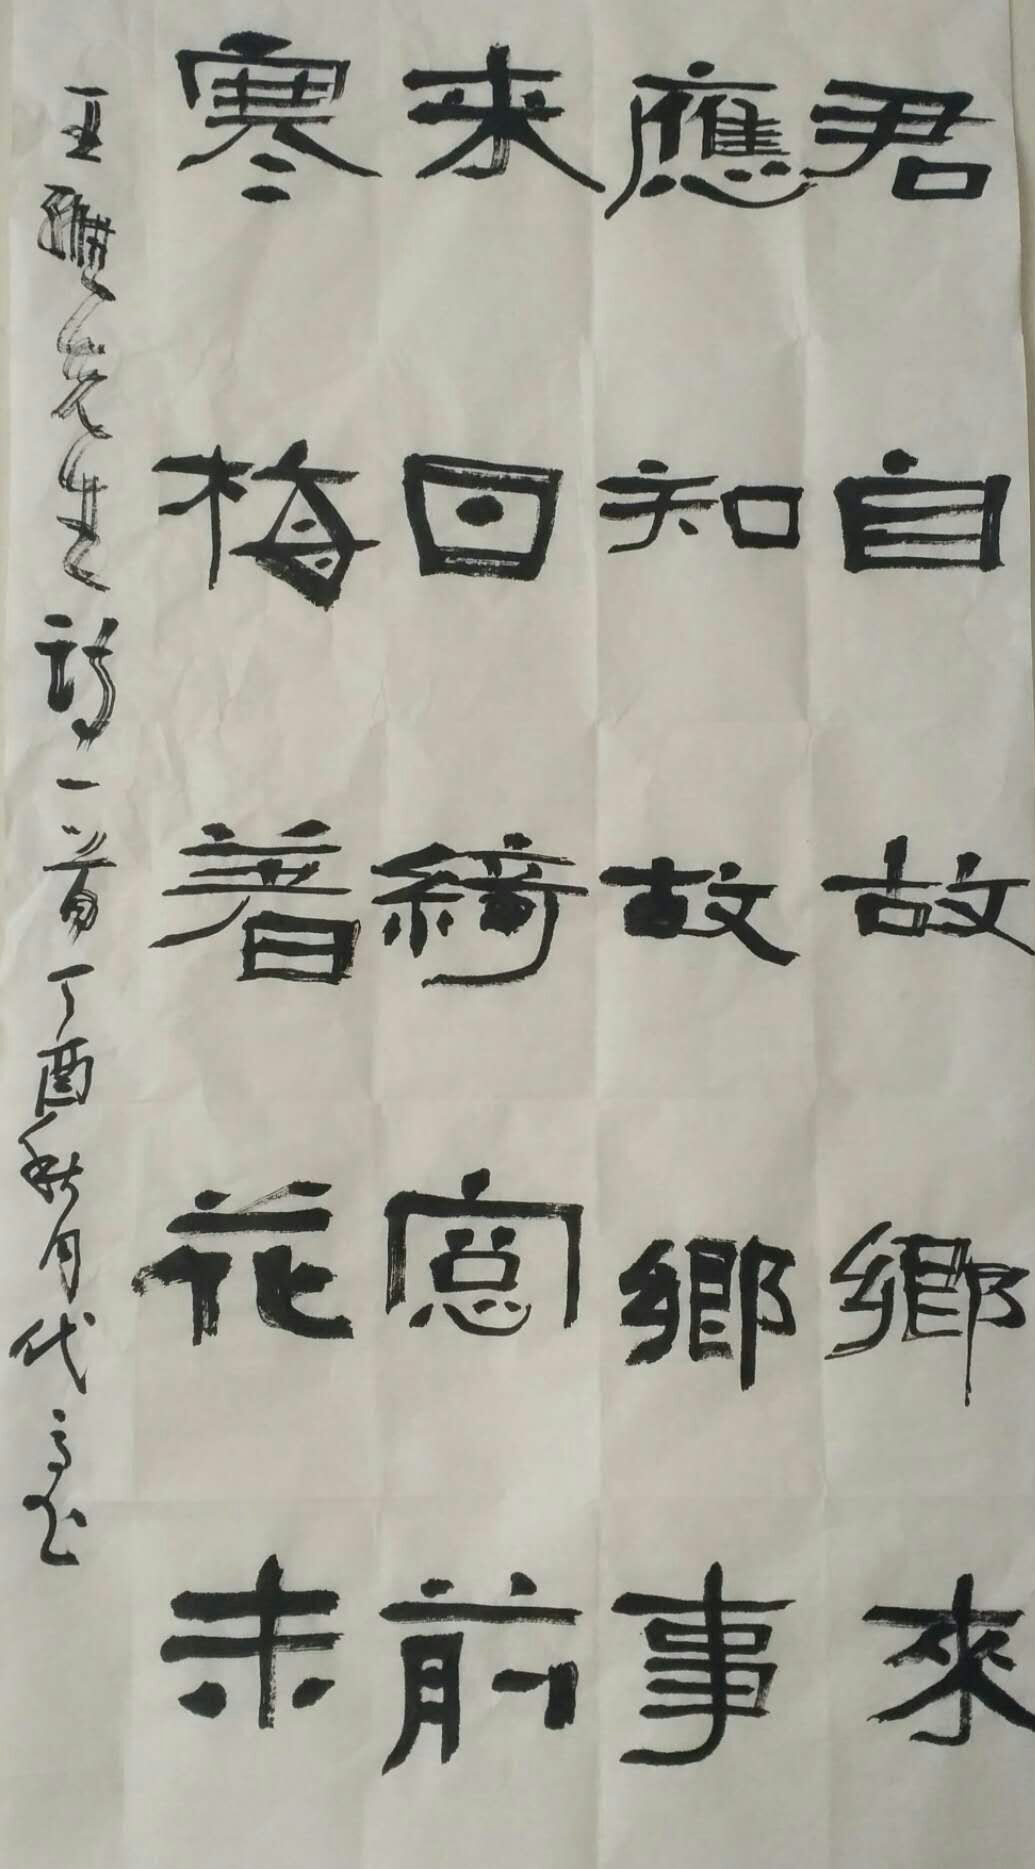 君自故鄉來
應知故鄉事
来日綺窓前
寒梅著花未
王維先生詩一首丁酉秋月代